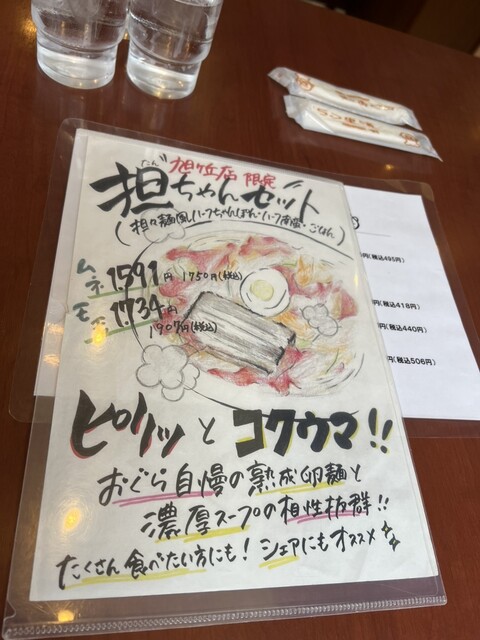 旭ヶ丘店 限定
担ちゃんセット
たん
(担々麺風ハーフちゃんぽん・ハーフ南蛮・ごはん)
ムネ 1591円 1750円(税込)
モモ 1734円
1907円(税込)
ピリッとコクウマ!!
おぐら自慢の熟成卵麺と
濃厚スープの相性抜群!!
たくさん食べたい方にも! シェアにもオススメ
円(税込495円)
円(税込418円)
円(税込440円)
円(税込506円)